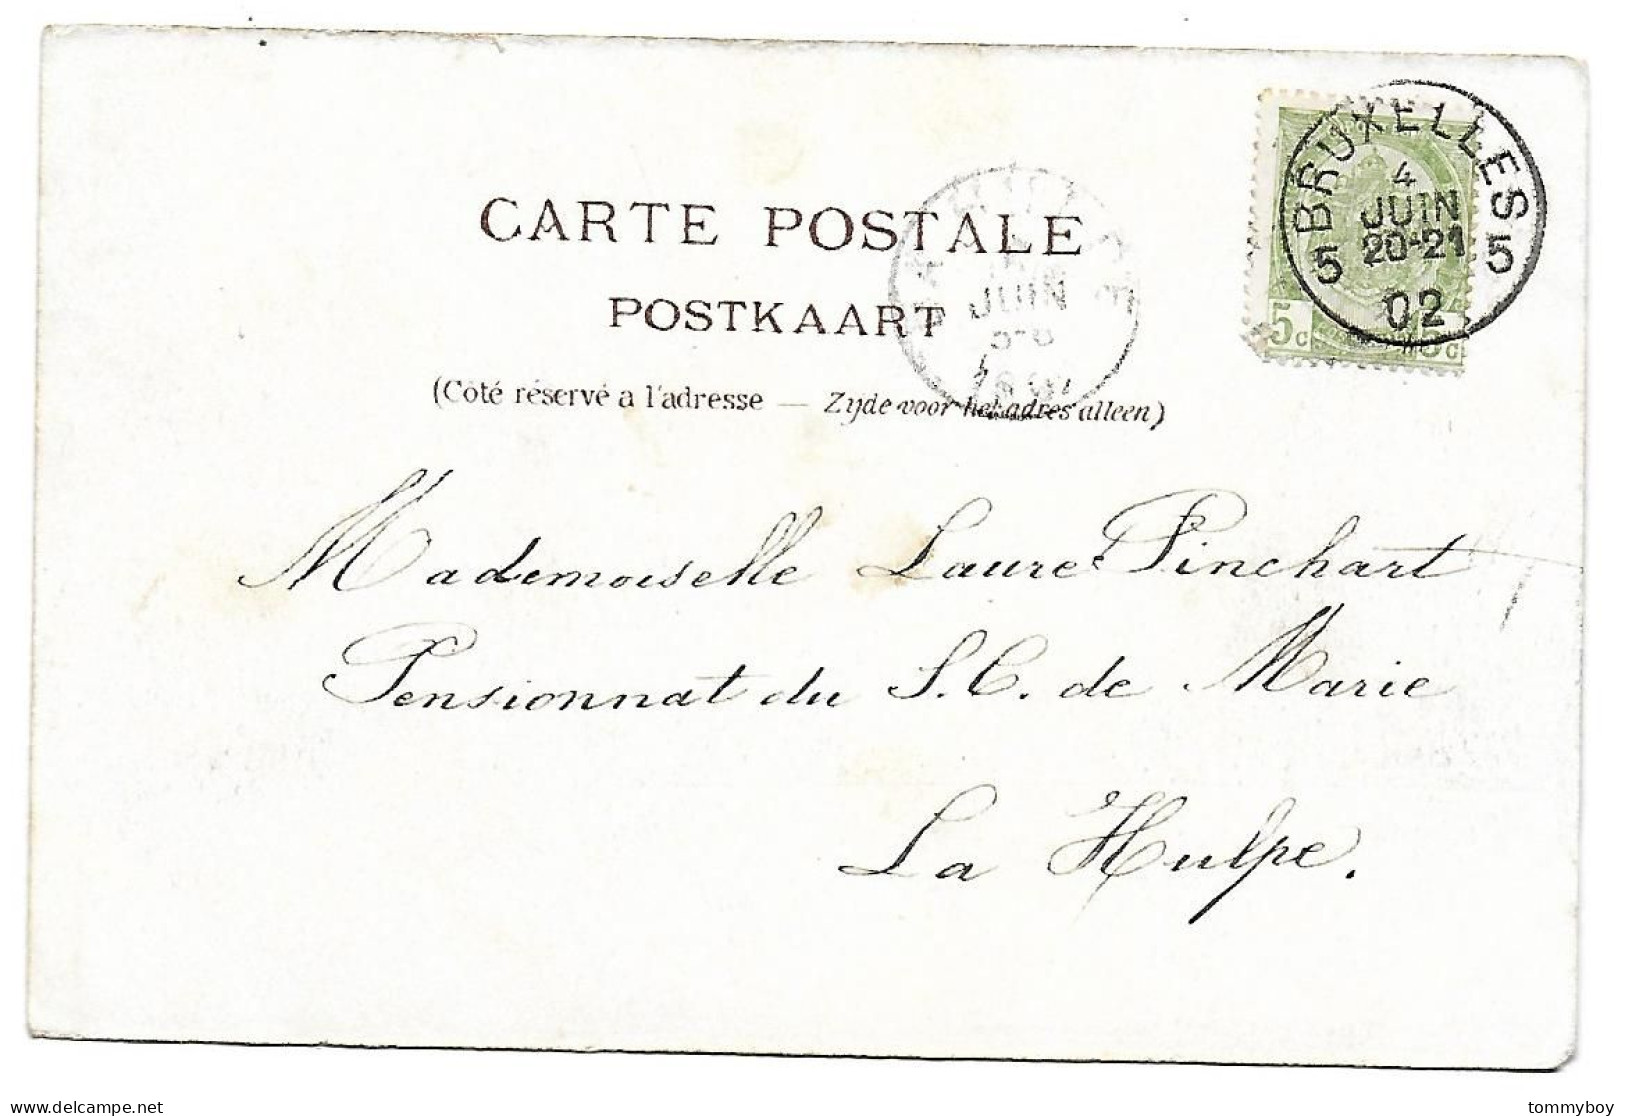 CARTE POSTALE
POSTKAART
(Côté réservé a l'adresse — Zijde voor het adres alleen)
BRUXELLES
4
JUIN
20-21
5 5
02
5c 5c
JUIN
Mademoiselle Laure Pinchart
Pensionnat du S.C. de Marie
La Hulpe.
delcampe.net
tommyboy